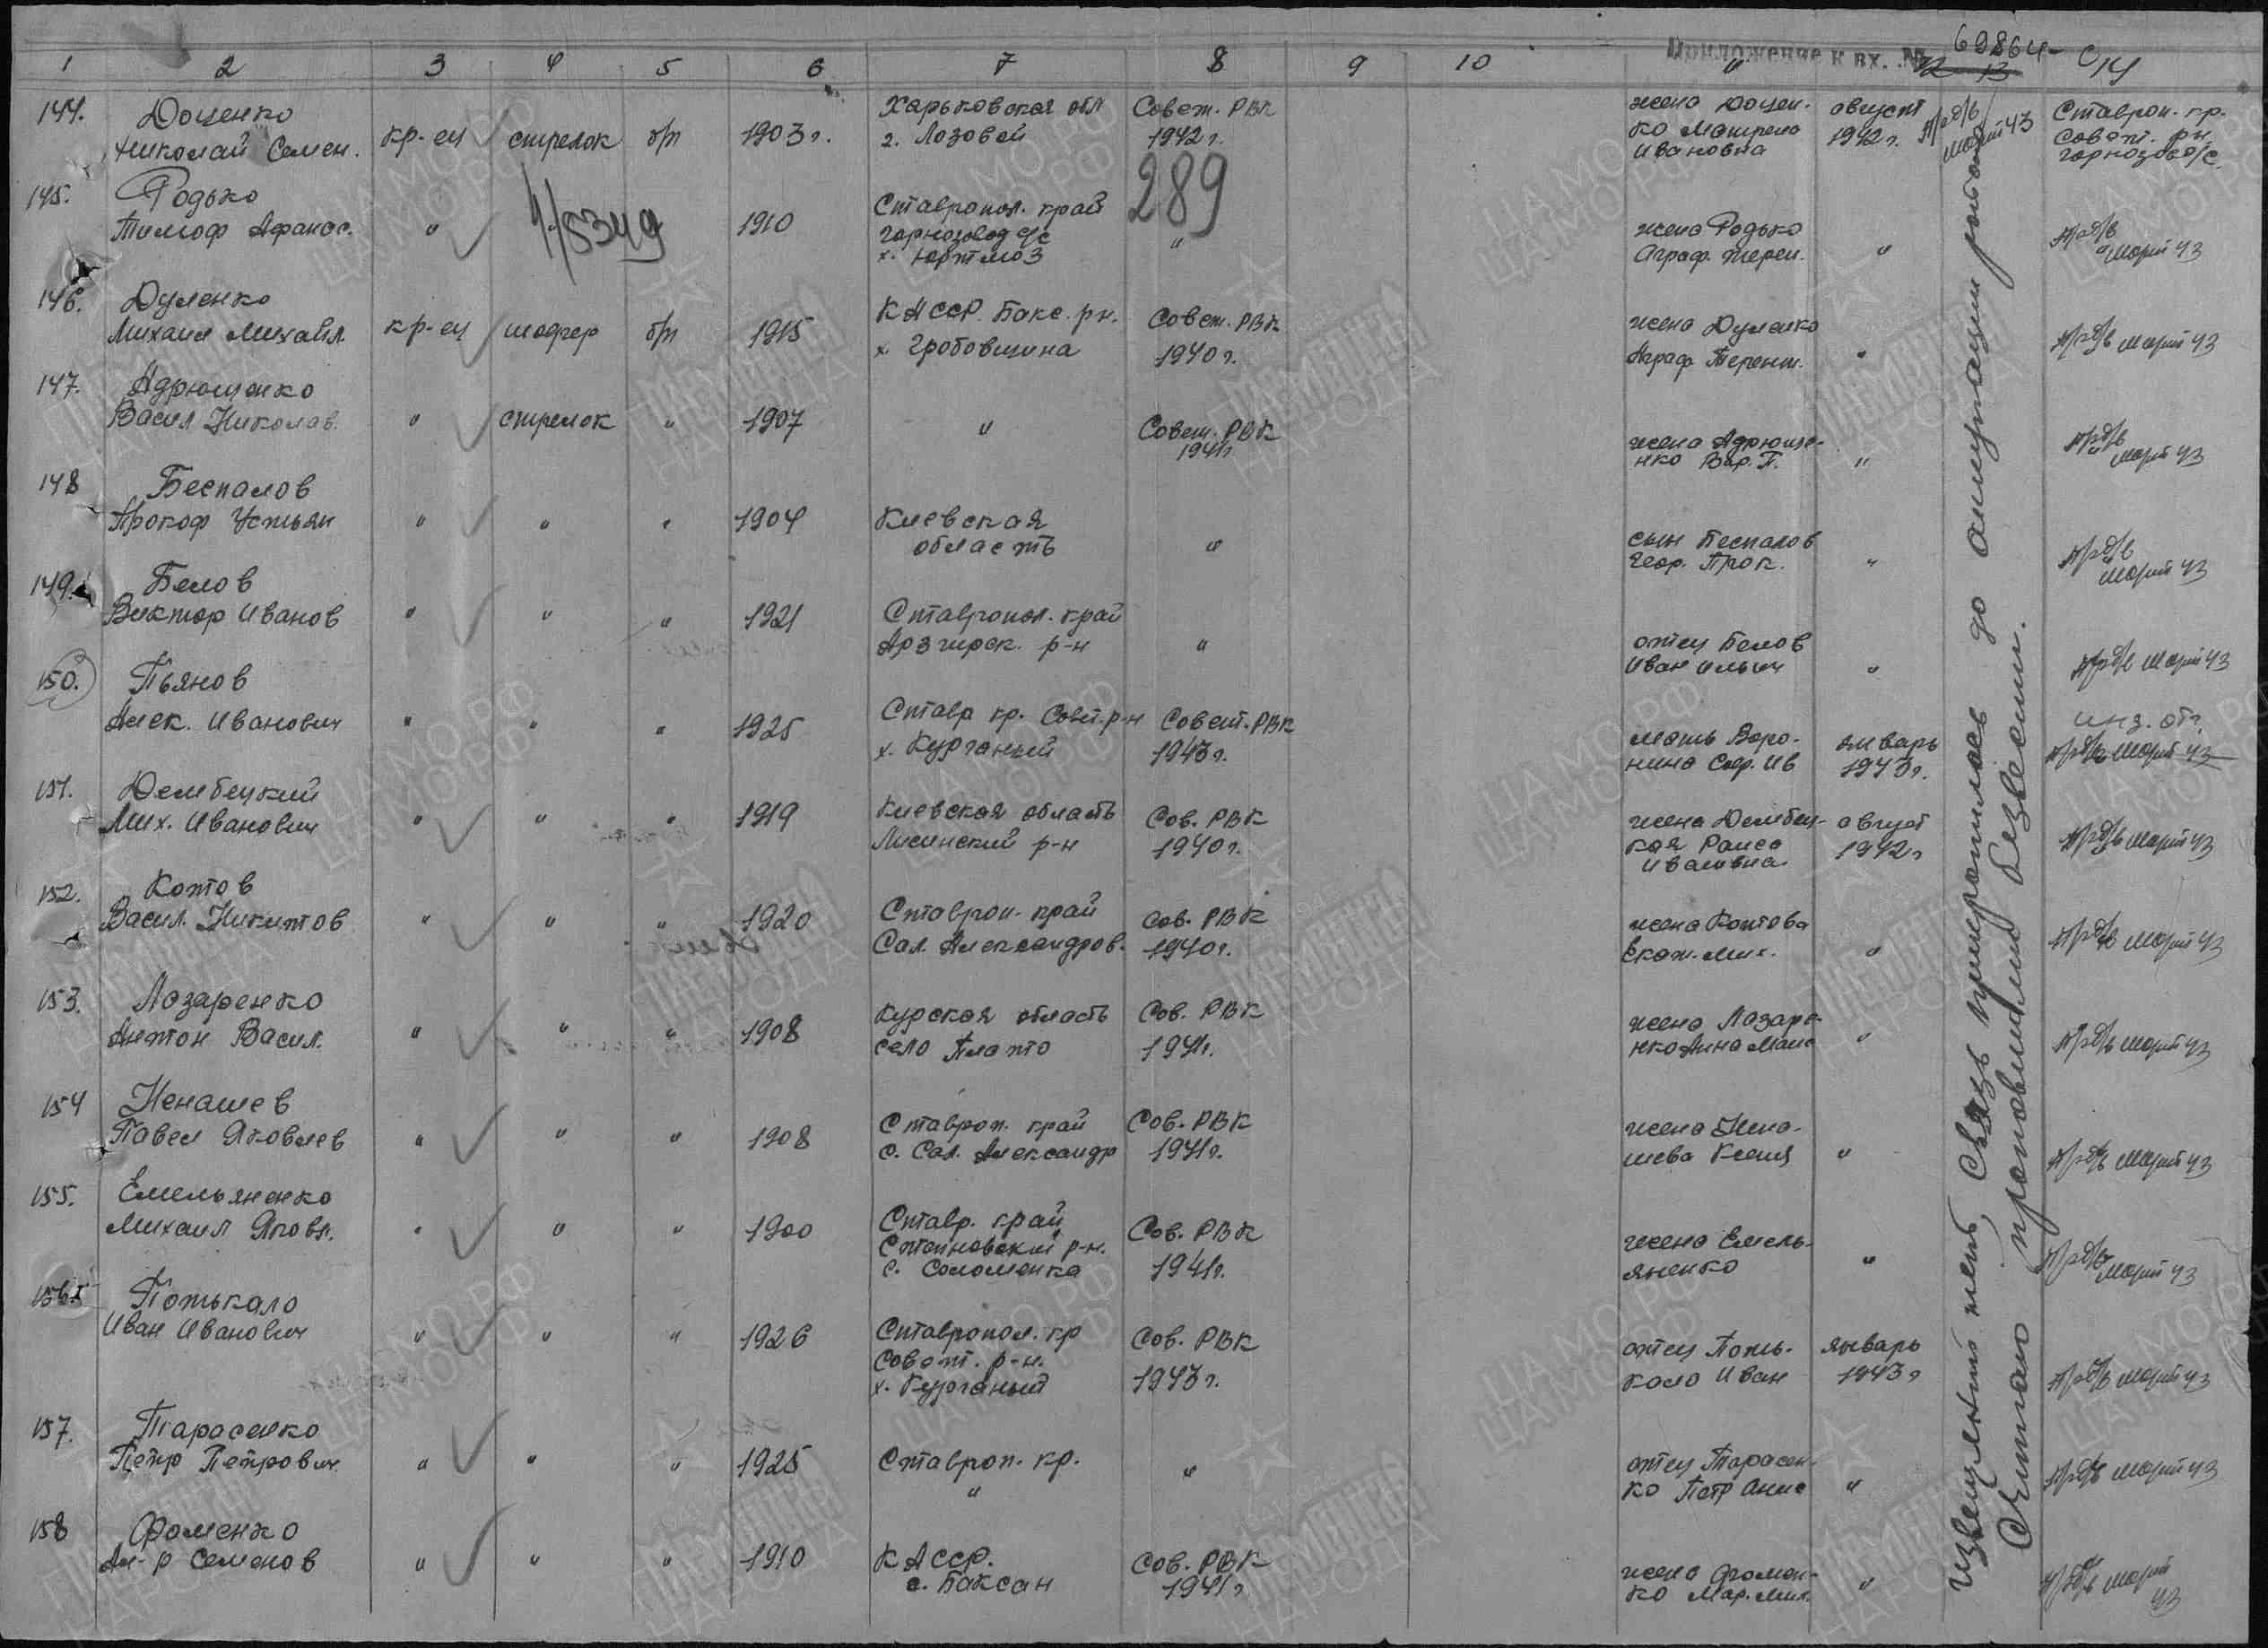 Приложение к вх. № 69864 с
1 2 3 4 5 6 7 8 9 10 11 12 13 14
144. Доценко Николай Семен. кр-ец стрелок б/п 1903 г. Харьковская обл г. Лозовей Совет. РВК 1942 г. жена Доцен-ко Матрена Ивановна август 1942 г. Ставроп. кр. Совет. рн. Горнозовод с/с
289
4/5349
145. Родько Тимоф Афанас. " 1910 Ставропол. край Горнозовод с/с х. Юртмоз " жена Родько Аграф. Терен. " март 43
146. Дуленко Михаил Михайл. кр-ец шофер б/п 1915 КАССР. Бакс. рн. х. Гробовщина Совет. РВК 1940 г. жена Дуленко Аграф Терент. " март 43
147. Адрющенко Васил Николав. " стрелок " 1907 " Совет. РВК 1941 г жена Адрюще-нко Вар. П. " март 43
148 Беспалов Прокоф Устьян " " " 1904 Киевская область " сын Беспалов Геор. Прок. " март 43
149. Белов Виктор Иванов " " " 1921 Ставропол. край Арзгирск. р-н " отец Белов Иван Ильич " март 43
150. Пьянов Алек. Иванович " " " 1925 Ставр кр. Совет. р-н х. Курганый Совет. РВК 1943 г. мать Воро-нина Сер. Ив январь 1943 г. март 43
151. Дембецкий Мих. Иванович " " " 1919 Киевская область Лисинский р-н Сов. РВК 1940 г. жена Дембец-кая Раиса Ивановна август 1942 г март 43
152. Котов Васил. Никитов " " " 1920 Ставроп. край Сал. Александров. Сов. РВК 1940 г. жена Котова Екат. Мих. " март 43
153. Лазаренко Антон Васил. " " " 1908 Курская область село Плато Сов. РВК 1941 г. жена Лазаре-нко Анна " март 43
154 Ненашев Павел Яковлев " " " 1908 Ставроп. край с. Сал. Александр Сов. РВК 1941 г. жена Нена-шева Ксения " март 43
155. Емельяненко Михаил Яковл. " " " 1900 Ставр. край р-н. с. Соломенка Сов. РВК 1941 г. жена Емель-яненко " март 43
156. Потькало Иван Иванович " " " 1926 Ставропол. кр Совет. р-н. х. Курганый Сов. РВК 1943 г. отец Поть-кало Иван январь 1943 г март 43
157. Тарасенко Петр Петрович " " " 1925 Ставроп. кр. " " отец Тарасен-ко Петр " март 43
158 Фоменко Ал-р Семенов " " " 1910 КАССР. с. Баксан Сов. РВК 1941 г жена Фомен-ко Мар. Мих. " март 43
Извещений нет, Связь прекратилась до оккупации района
Считаю пропавшими безвести.
ЦАМО РФ
ПАМЯТЬ НАРОДА